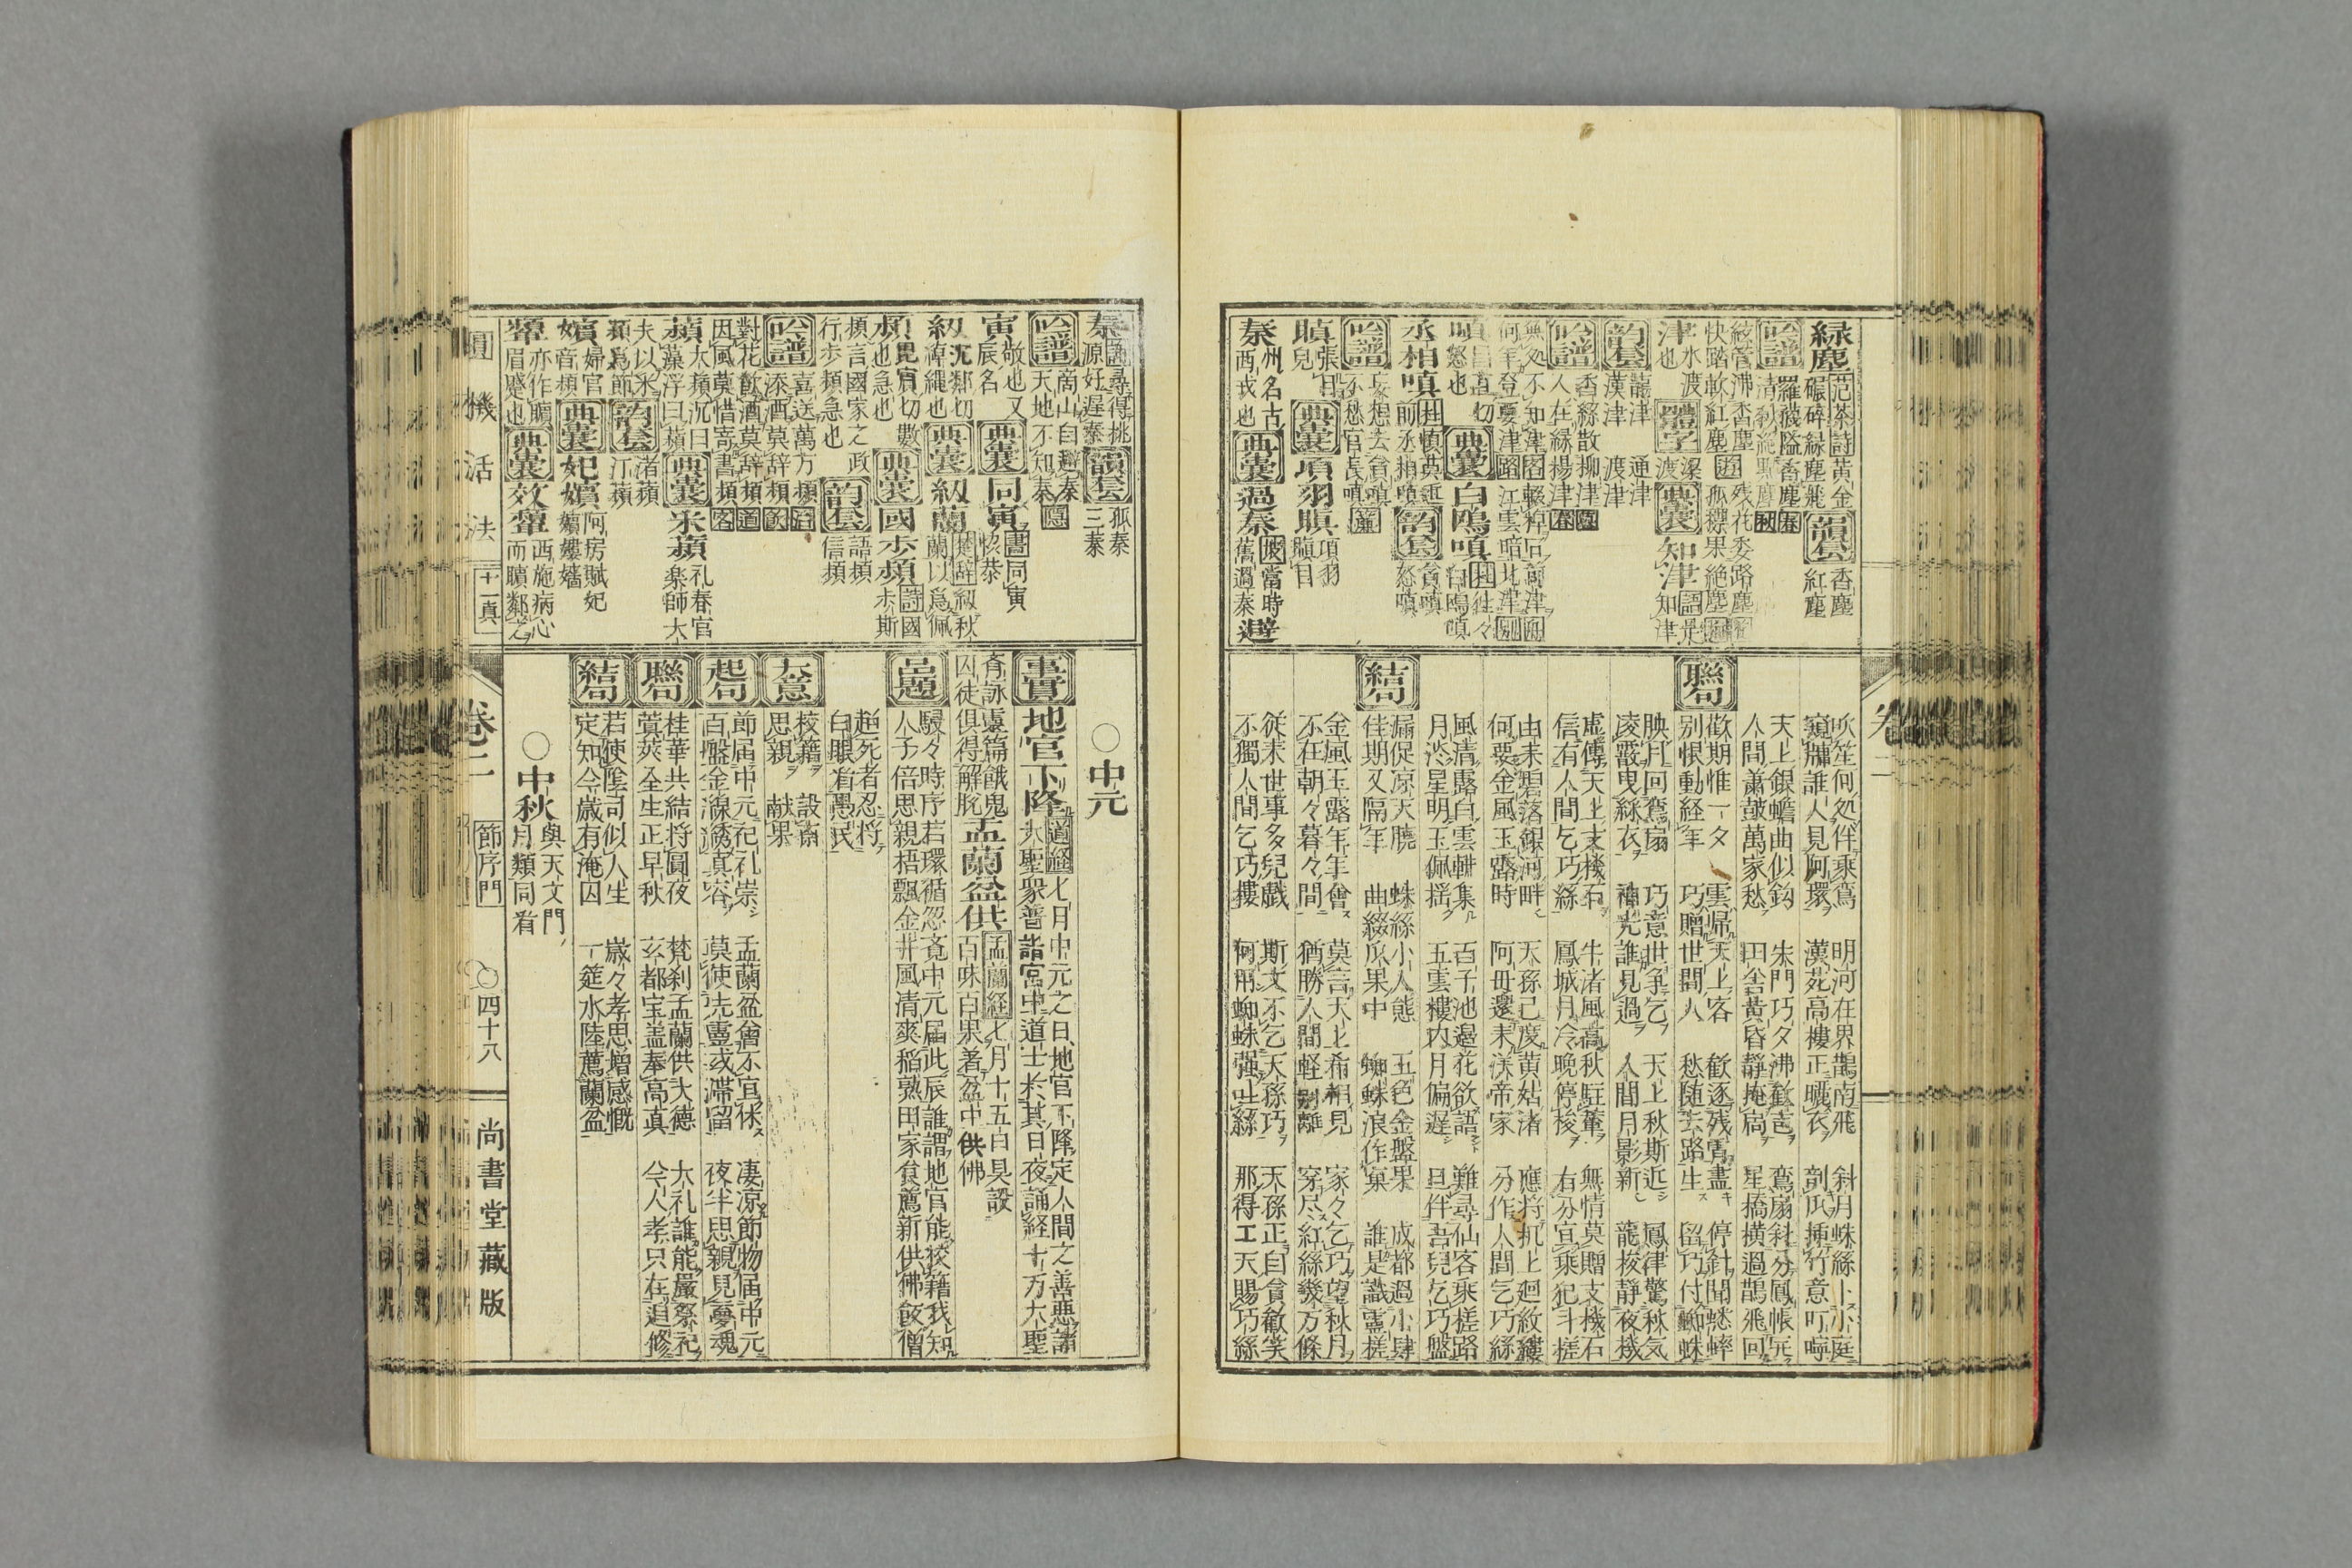 緑塵 碾碎緑塵飛 范茶詩 黄金 韻套 香塵 紅塵
吟譜 羅襪隘香塵 春 秋
津 水渡也 體字 渡 梁 典囊 知津 語是知津
韵套 漢津 渡津 通津
吟譜 香絲散柳津 人在緑楊津 春
嗔 昌真切 怒也 典囊 白鴎嗔
丞相嗔 杜慎莫近前丞相嗔 韵套 貪嗔 怒嗔
吟譜 妄想去貪嗔 不愁官長嗔
瞋 張目皃 典囊 項羽瞋 項羽瞋目
秦 州名古西戎也 典囊 過秦 當時避舊過秦
聯句
吹笙何処伴乘鸞 明河在界鵲南飛 斜月蛛絲卜小庭
窺牖誰人見阿環 漢苑高樓正曝衣 剖瓜挿竹意叮嚀
天上銀蟾曲似鈎 朱門巧夕沸歡言 鸞扇斜分鳳帳開
人間蕭鼓萬家愁 田舎黄昏靜掩扃 星橋横過鵲飛回
歓期惟一夕 雲帰天上客 歓逐残宵盡 停針聞蟋蟀
別恨動経年 巧贈世間人 愁随去路生 留巧付蜘蛛
映月回鸞扇 巧意世爭乞 天上秋斯近 鳳律驚秋気
凌霞曳綵衣 神光誰見過 人間月影新 龍梭靜夜機
虚傳天上支機石 牛渚風高秋駐輦 無情莫贈支機石
信有人間乞巧絲 鳳城月冷晩停梭 有分宜乘犯斗槎
由来碧落銀河畔 天孫已度黄姑渚 應将机上廻紋縷
何要金風玉露時 阿母還来漢帝家 分作人間乞巧絲
風清露白雲軿集 百子池邉花欲語 難尋仙客乘槎路
月淡星明玉佩揺 五雲樓内月偏遲 且伴吾兒乞巧盤
結句
漏促凉天曉 蛛絲小人態 五色金盤果 成都過小肆
佳期又隔年 曲綴瓜果中 蜘蛛浪作窠 誰是識靈槎
金風玉露年年會 莫言天上希相見 家々乞巧望秋月
不在朝々暮々間 猶勝人間軽別離 穿尽紅絲幾万條
従来世事多兒戯 斯文不乞天孫巧 天孫正自貪歓笑
不獨人間乞巧樓 何用蜘蛛强吐絲 那得工天賜巧絲
秦 源好遅秦 韻套 孤秦 三秦
吟譜 商山自避秦 天地不知秦 隠
寅 敬也又辰名 典囊 同寅 書同寅恊恭
紉 沈鄰切 縄也 典囊 紉蘭 楚辞紉秋蘭以爲佩
頻 毘賓切數也急也 典囊 國步頻 詩國步斯頻言國家之政行步頻急也 韵套 語頻 信頻
吟譜 喜送萬方頻 添酒莫辞頻 飲
對花飲酒莫辞頻 因風莫惜寄書頻 客
蘋 大蘋沉曰藻浮曰蘋 典囊 采蘋 礼春官楽師大夫以采蘋爲節 韵套 渚蘋 汀蘋
嬪 婦官音頻 典囊 妃嬪 阿房賦妃嬪媵嬙
顰 亦作矉眉蹙也 典囊 效顰 西施病心而矉鄰之
○中元
事實 地官下降 道経 七月中元之日地官下降定人間之善悪諸大聖衆普詣宮中道士於其日夜誦経十方大聖
斉詠靈篇餓鬼囚徒倶得解脱 盂蘭盆供 盂蘭経 七月十五日具設百味百果著盆中供佛
品題 駸々時序若環循忽斉中元届此辰誰謂地官能挍籍我知
人子倍思親梧飄金井風清爽稲熟田家食薦新供佛飯僧
超死者忍将白眼看愚民
大意 校籍 設斎
思親 献果
起句 節届中元祀礼崇 盂蘭盆會不宜休 凄凉節物届中元
百盤金線綉真容 莫使先靈或滞留 夜半思親見夢魂
聯句 桂華共結将圓夜 梵刹盂蘭供大徳 大礼誰能嚴祭祀
蓂莢全生正早秋 玄都宝盖奉高真 今人孝只在追修
結句 若使陰司似人生 歳々孝思增感慨
定知今歳有淹囚 一筵水陸薦蘭盆
○中秋 與天文門月類同看
圓機活法 十一真
卷二 節序門 四十八
尚書堂藏版